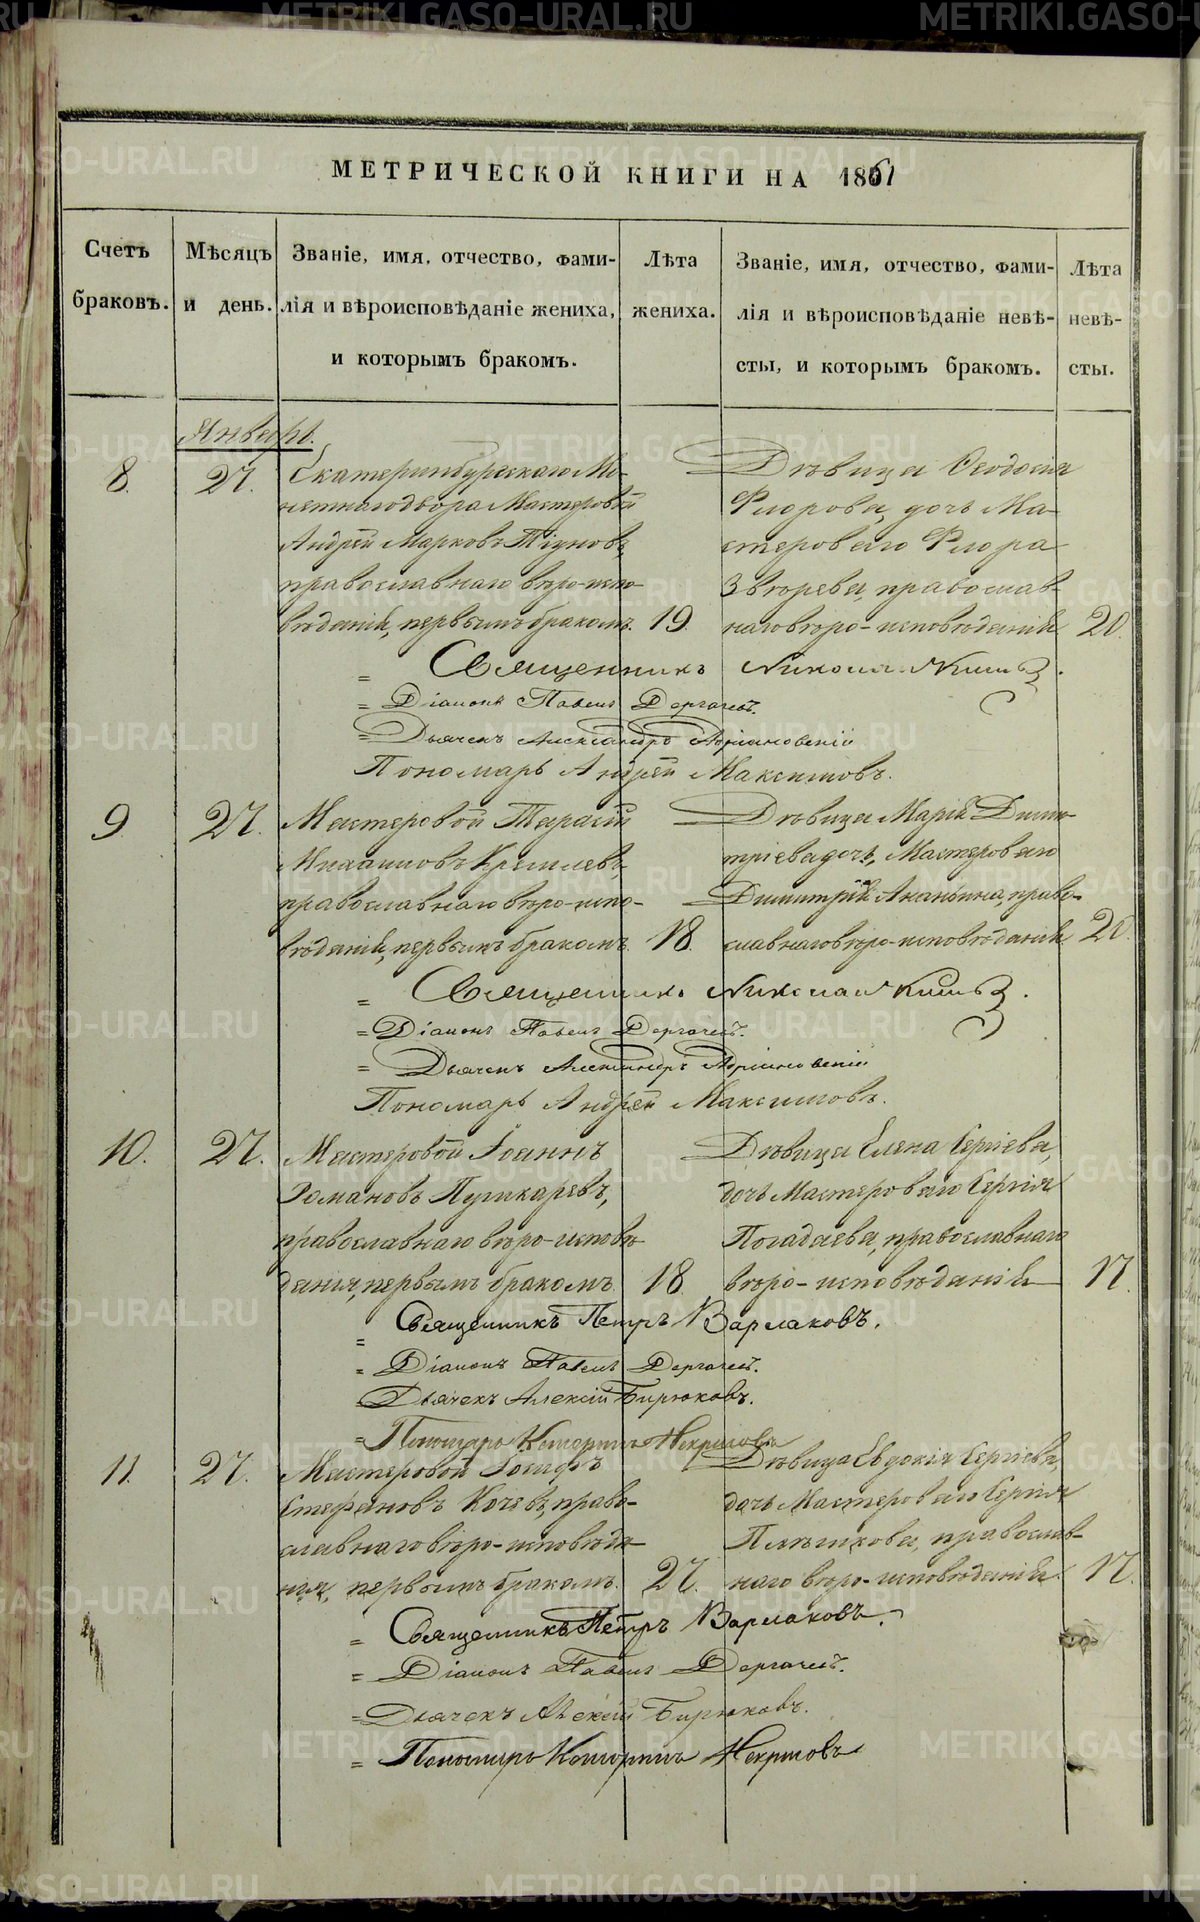 МЕТРИЧЕСКОЙ КНИГИ НА 1861
Счетъ браковъ.
Мѣсяцъ и день.
Званіе, имя, отчество, фами-
лія и вѣроисповѣданіе жениха,
и которымъ бракомъ.
Лѣта жениха.
Званіе, имя, отчество, фами-
лія и вѣроисповѣданіе невѣ-
сты, и которымъ бракомъ.
Лѣта невѣ-
сты.
Январь.
8. 27.
Екатеринбургскаго Мо-
нетнаго двора Мастеровой
Андрей Марковъ Тіуновъ,
православнаго вѣро-испо-
вѣданія, первымъ бракомъ. 19.
Дѣвица Ѳеодосія
Флорова, дочь Ма-
стероваго Флора
Звѣрева, православ-
наго вѣро-исповѣданія 20.
Священникъ Николай
Діаконъ Павелъ Дергачевъ.
Дьячекъ Александръ Адріановскій
Пономарь Андрей Максимовъ.
9. 27.
Мастеровой Тарасій
Михаиловъ
православнаго вѣро-испо-
вѣданія, первымъ бракомъ. 18.
Дѣвица Марія Дими-
тріева дочь, Мастероваго
Димитрія Ананьина, право-
славнаго вѣро-исповѣданія 20.
Священникъ Николай
Діаконъ Павелъ Дергачевъ.
Дьячекъ Александръ Адріановскій
Пономарь Андрей Максимовъ.
10. 27.
Мастеровой Іоаннъ
Романовъ Пушкаревъ,
православнаго вѣро-исповѣ-
данія, первымъ бракомъ. 18.
Дѣвица Елена Сергіева,
дочь Мастероваго Сергія
Погадаева, православнаго
вѣро-исповѣданія 17.
Священникъ Петръ Варлаковъ.
Діаконъ Павелъ Дергачевъ.
Дьячекъ Алексій Бирюковъ.
Пономарь Некрасовъ
11. 27.
Мастеровой Іосифъ
Стефановъ Кочевъ, право-
славнаго вѣро-исповѣда-
нія, первымъ бракомъ. 27.
Дѣвица Евдокія Сергіева,
дочь Мастероваго Сергія
православ-
наго вѣро-исповѣданія 17.
Священникъ Петръ Варлаковъ.
Діаконъ Павелъ Дергачевъ.
Дьячекъ Алексій Бирюковъ.
Пономарь Некрасовъ
METRIKI.GASO-URAL.RU